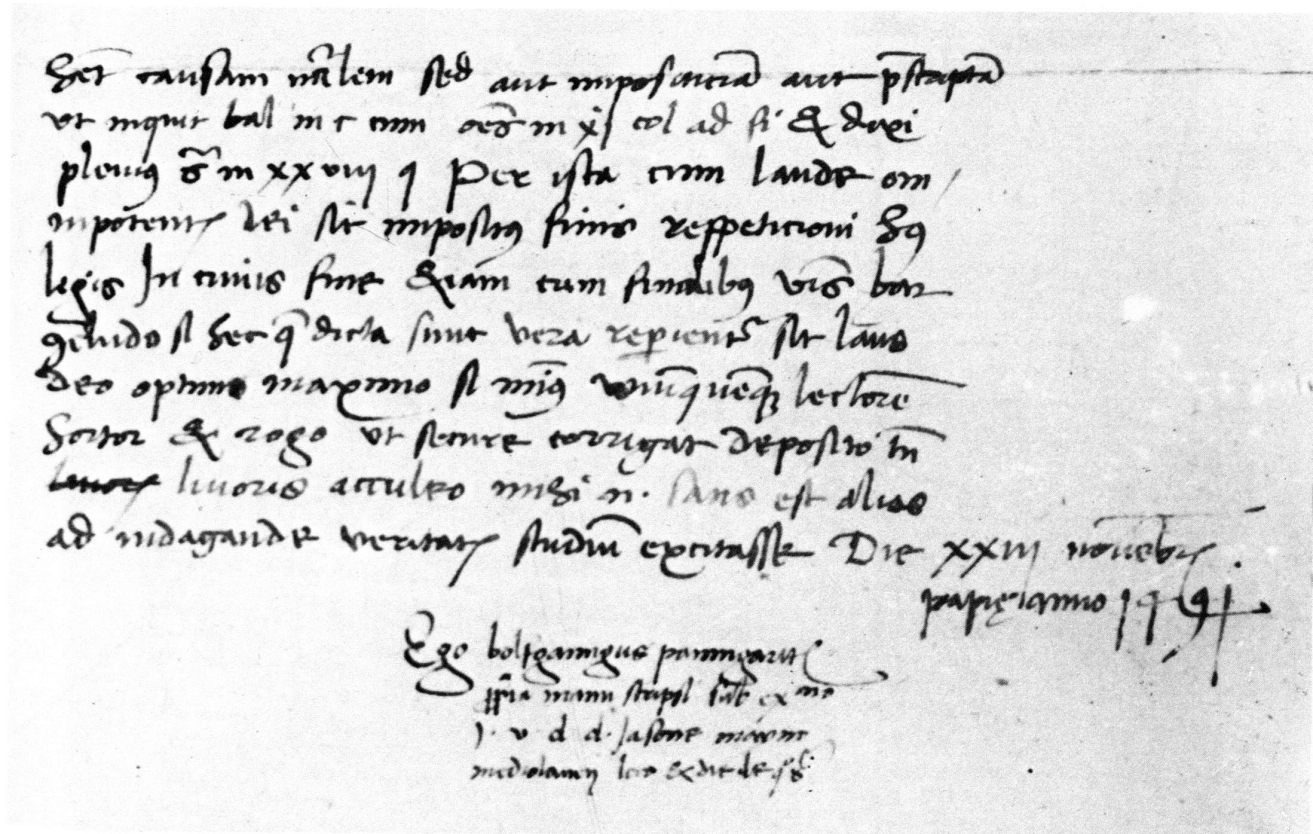 het causam nralem sed aut impositiciā aut pscriptā
ut inquit bal in c cum oēs in xj col ad fi & dixi
plenius in xxviii q Per ista cum laude om
nipotent dei sit impositus finis reppeticioni hus
legis In cuius fine etiam cum finalibus vbis bar
9cludo si hec q dicta sunt vera reperient sit laus
deo optimo maximo si minus unūquēq lectorē
hortor & rogo ut secure corrigat deposito tn
livoris acculeo mihi n. satis est alios
ad indagande veritat studiū excitasse Die xxiii novebr
papię anno 1491
Ego bolfgangus paumgart
ppria manu scripsi sub exmo
j. v d d. Jasone mayno
mediolanen